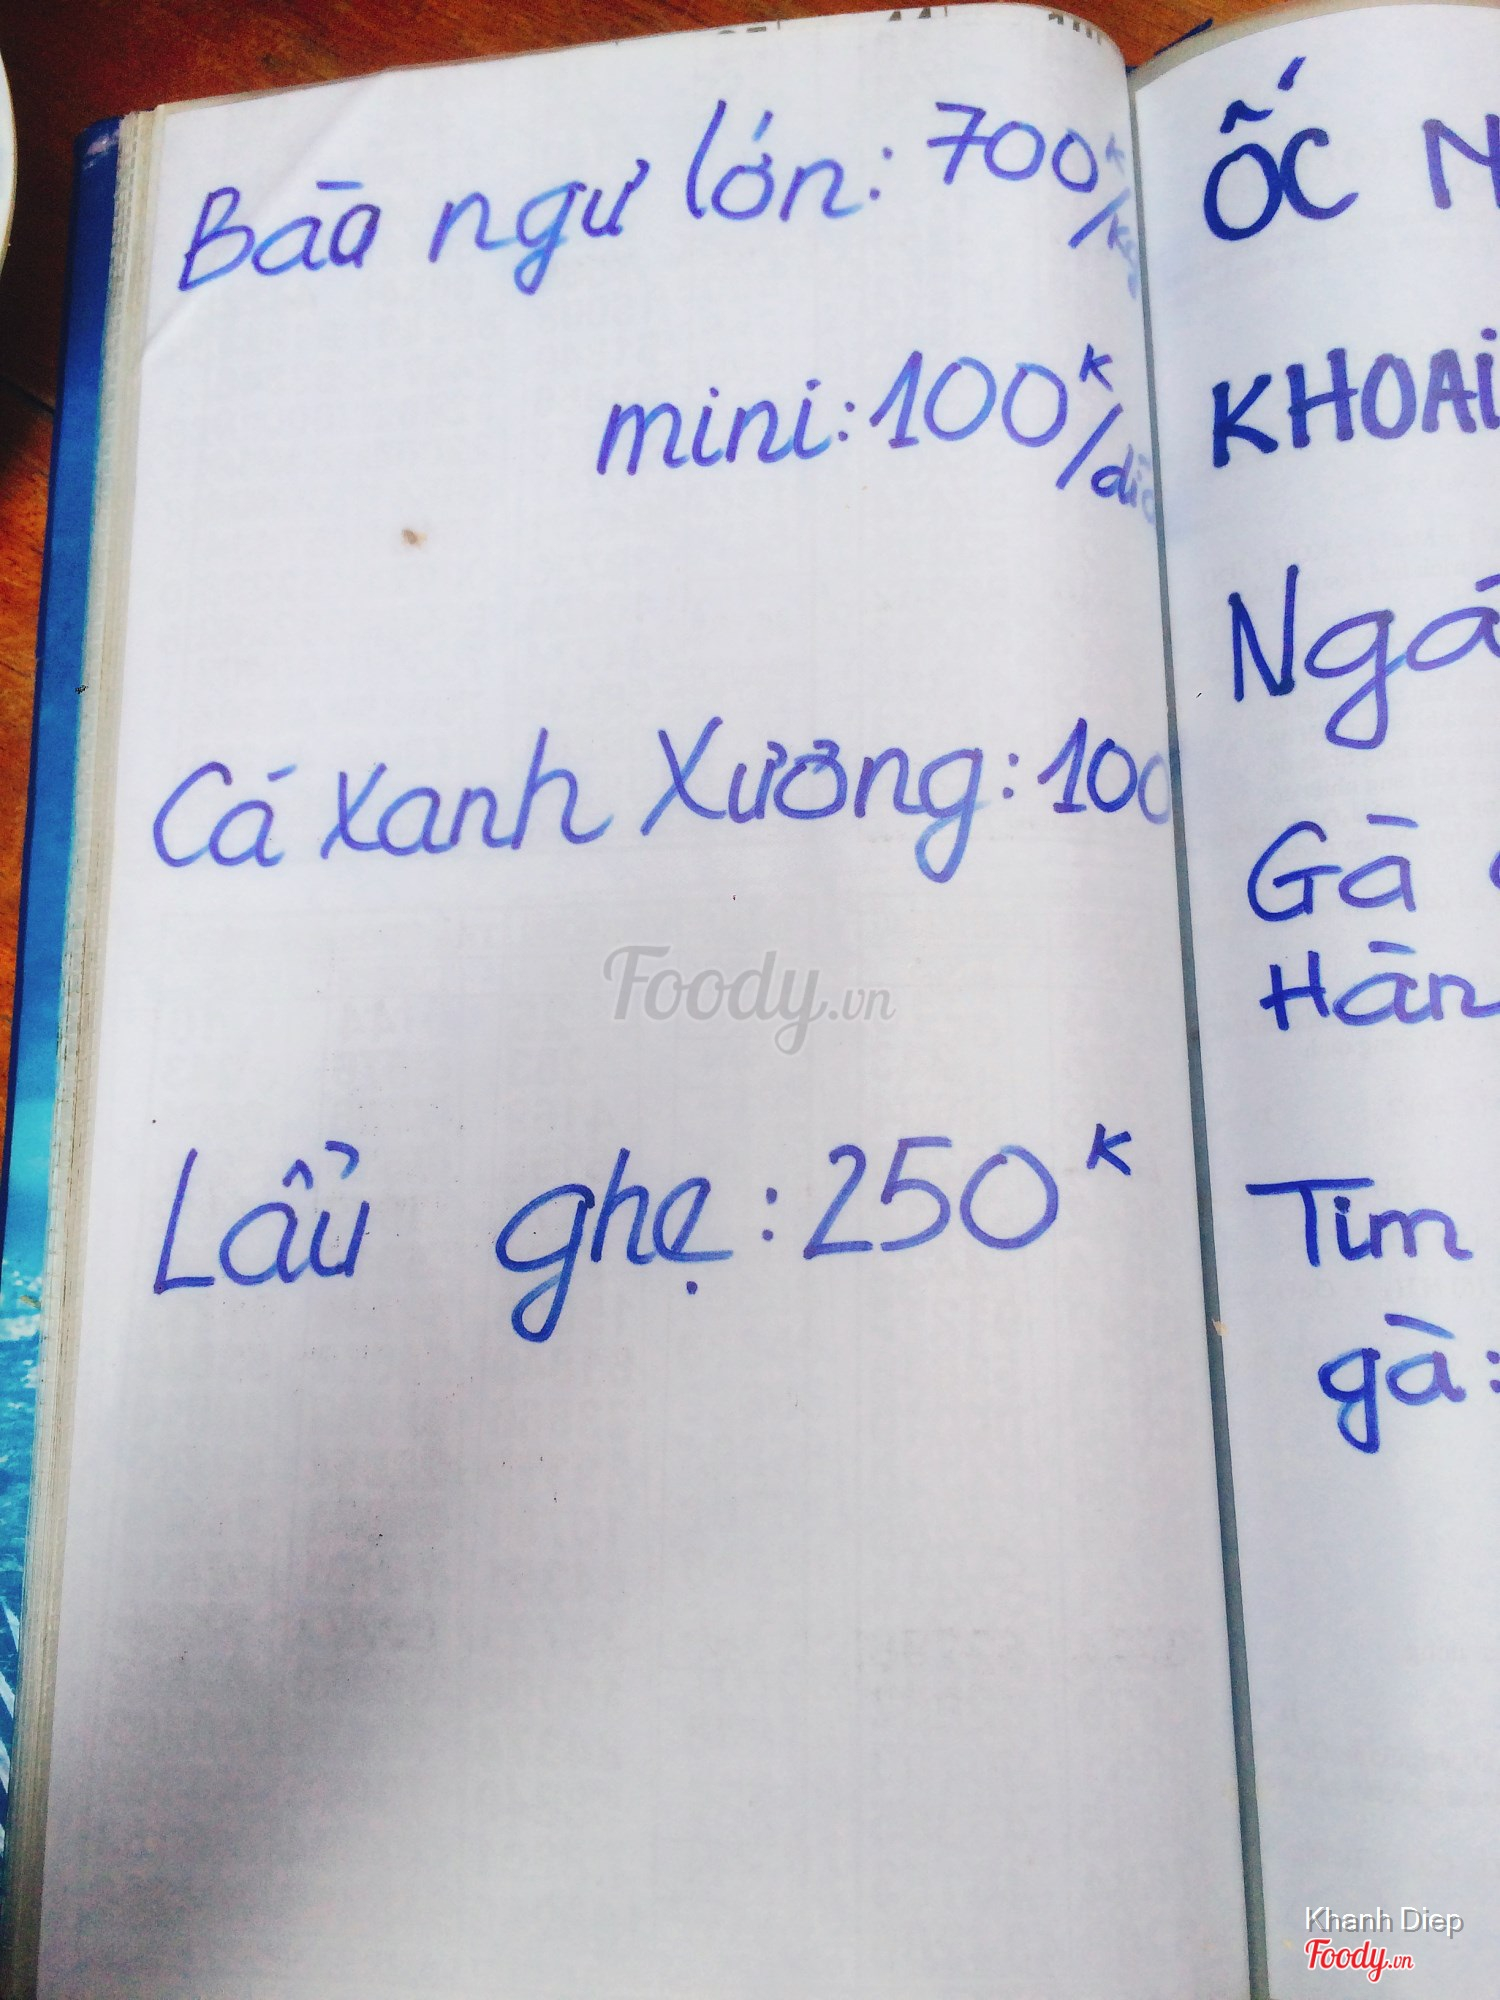 Bào ngư lớn: 700k/kg
mini: 100k/dĩa
Cá Xanh Xương: 100
Lẩu ghẹ: 250k
ỐC
KHOAI
Gà
Hàn
Tim
gà:
Foody.vn
Khanh Diep
Foody.vn